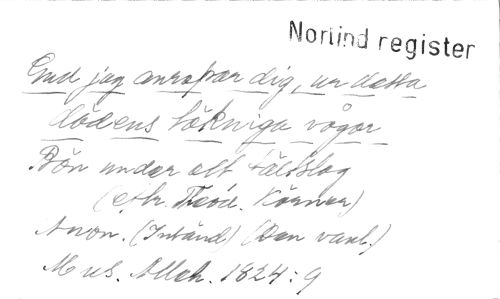 Norlind register
Gud jag anropar dig, ur detta
dödens tökniga vågor
Bön under ett fältslag
(efter Theod. Körner)
Anon. (Inländ) (Den vanl.)
Mus. Alleh. 1824: 9